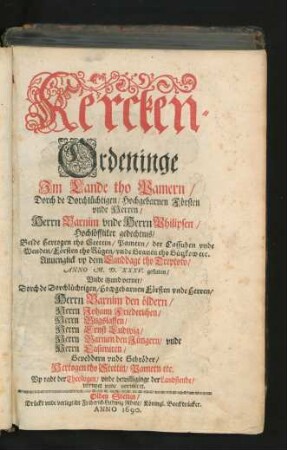 Kercken-
Ordeninge
Im Lande tho Pamern/
Dorch de Dorchlüchtigen/ Hochgebarnen Försten
vnde Herren/
Herrn Barnim vnde Herrn Philipsen/
Hochlöffliker gedechtnus/
Beide Hertogen tho Stettin/ Pamern/ der Cassuben vnde
Wenden/ Försten tho Rügen/ vnde Graven tho Gützkow etc.
vp dem Landdage tho Treptow/
ANNO M. D. XXXV.
Vnde
Dorch de Dorchlüchtigen/ Hochgebarnen Försten vnde Herren/
Herrn Barnim den öldern/
Herrn Johann Friederichen/
Herrn Bugslaffen/
Herrn Ernst Ludwig/
Herrn Barnim den Jüngern/ vnde
Herrn Casimiren/
Geveddern vnde Gebröder/
Hertogen tho Stettin/ Pamern etc.
Up radt der Theologen/ vnde bewilliginge der Landstende/
Olden Stettin/
Drückt vnde
ANNO 1690.